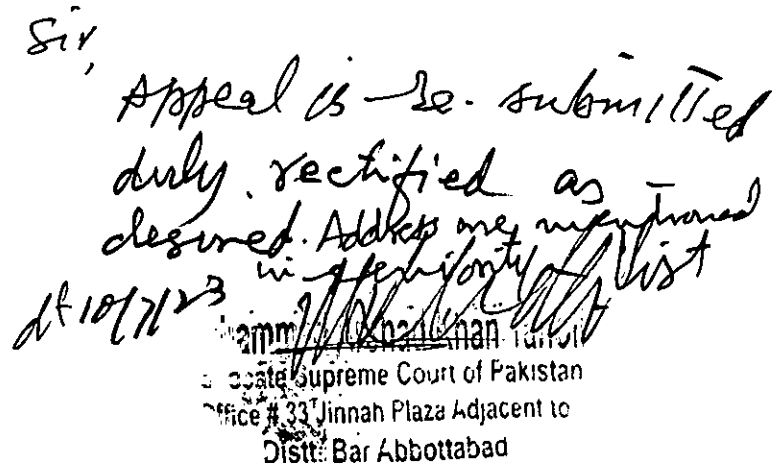 Sir,
Appeal is Re-submitted
duly rectified as
desired. Address are mentioned
in Seniority list
dt 10/7/23
Khan
Supreme Court of Pakistan
Office # 33 Jinnah Plaza Adjacent to
Distt: Bar Abbottabad